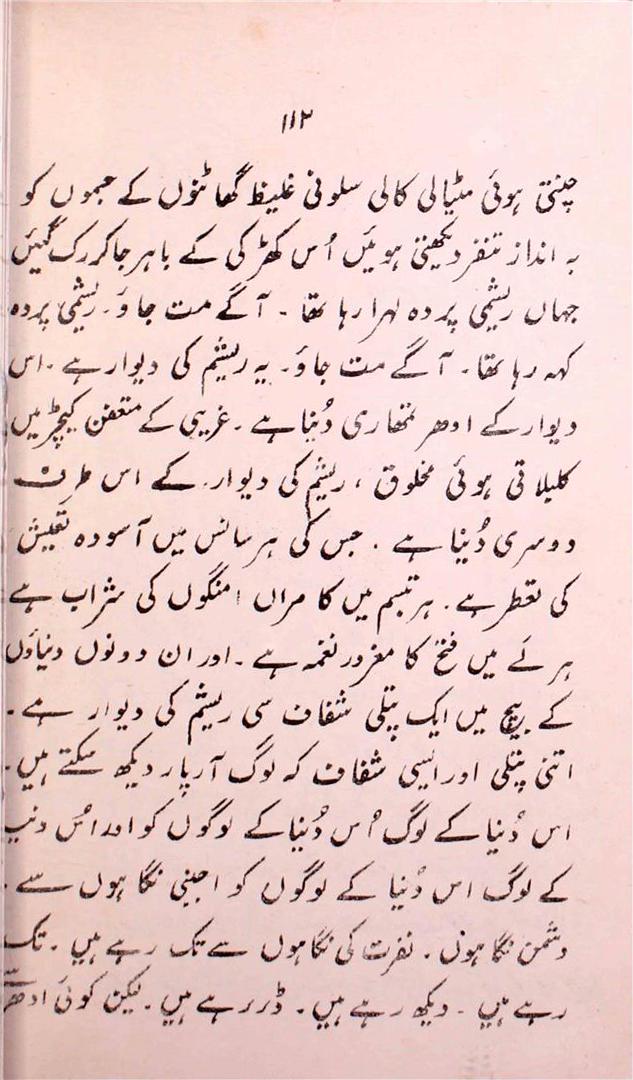 ۱۱۲
چنتی ہوئی مٹیالی کالی سلونی غلیظ گھاٹنوں کے جسموں کو
بہ انداز تنفر دیکھتی ہوئیں اُس کھڑکی کے باہر جا کر رک گئیں
جہاں ریشمی پردہ لہرا رہا تھا ۔ آگے مت جاؤ ۔ ریشمی پردہ
کہہ رہا تھا ۔ آگے مت جاؤ ۔ یہ ریشم کی دیوار ہے ۔ اس
دیوار کے ادھر تمھاری دُنیا ہے ۔ غریبی کے متعفن کیچڑ میں
کلبلاتی ہوئی مخلوق ، ریشم کی دیوار کے اس طرف
دوسری دُنیا ہے ۔ جس کی ہر سانس میں آسودہ تعیش
کی تعطر ہے ۔ ہر تبسم میں کامراں امنگوں کی شراب ہے
ہر لے میں فتح کا مغرور نغمہ ہے ۔ اور ان دونوں دنیاؤں
کے بیچ میں ایک پتلی شفاف سی ریشم کی دیوار ہے ۔
اتنی پتلی اور ایسی شفاف کہ لوگ آر پار دیکھ سکتے ہیں ۔
اس دُنیا کے لوگ اُس دُنیا کے لوگوں کو اور اُس دنیا
کے لوگ اس دُنیا کے لوگوں کو اجنبی نگاہوں سے ۔
دشمن نگاہوں ۔ نفرت کی نگاہوں سے تک رہے ہیں ۔ تک
رہے ہیں ۔ دیکھ رہے ہیں ۔ ڈر رہے ہیں ۔ لیکن کوئی ادھر سے